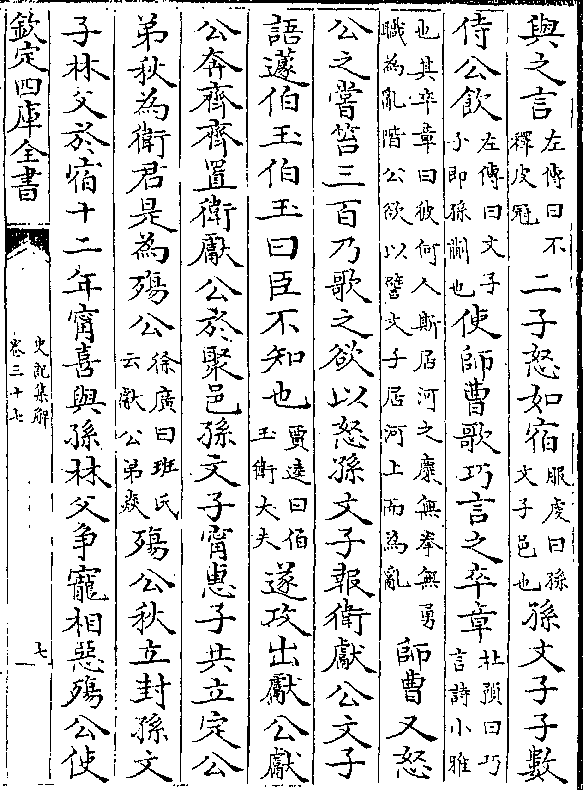 與之言左傳曰不釋皮冠二子怒如宿服虔曰孫文子邑也孫文子子數
侍公飲左傳曰文子小即孫蒯也使師曹歌巧言之卒章杜預曰巧言詩小雅
也其卒章曰彼何人斯居河之麋無拳無勇職為亂階公欲以譬文子居河上而為亂師曹又怒
公之嘗笞三百乃歌之欲以怒孫文子報衛獻公文子
語蘧伯玉伯玉曰臣不知也賈逵曰伯玉衛大夫遂攻出獻公獻
公奔齊齊置衛獻公於聚邑孫文子甯惠子共立定公
弟秋為衛君是為殤公徐廣曰班氏云獻公弟焱殤公秋立封孫文
子林父於宿十二年甯喜與孫林父爭寵相惡殤公使
欽定四庫全書
史記集解
卷三十七
七